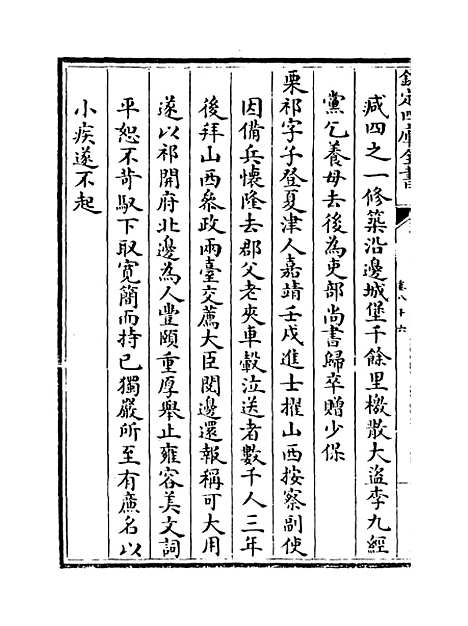 欽定四庫全書
卷八十六
減四之一修築沿邊城堡千餘里檄散大盜李九經
黨乞養母去後為吏部尚書歸卒贈少保
栗祁字子登夏津人嘉靖壬戌進士擢山西按察副使
因備兵懷隆去郡父老夾車轂泣送者數千人三年
後拜山西參政兩臺交薦大臣閱邊還報稱可大用
遂以祁開府北邊為人豐頤重厚舉止雍容美文詞
平恕不苛馭下取寬簡而持己獨嚴所至有廉名以
小疾遂不起